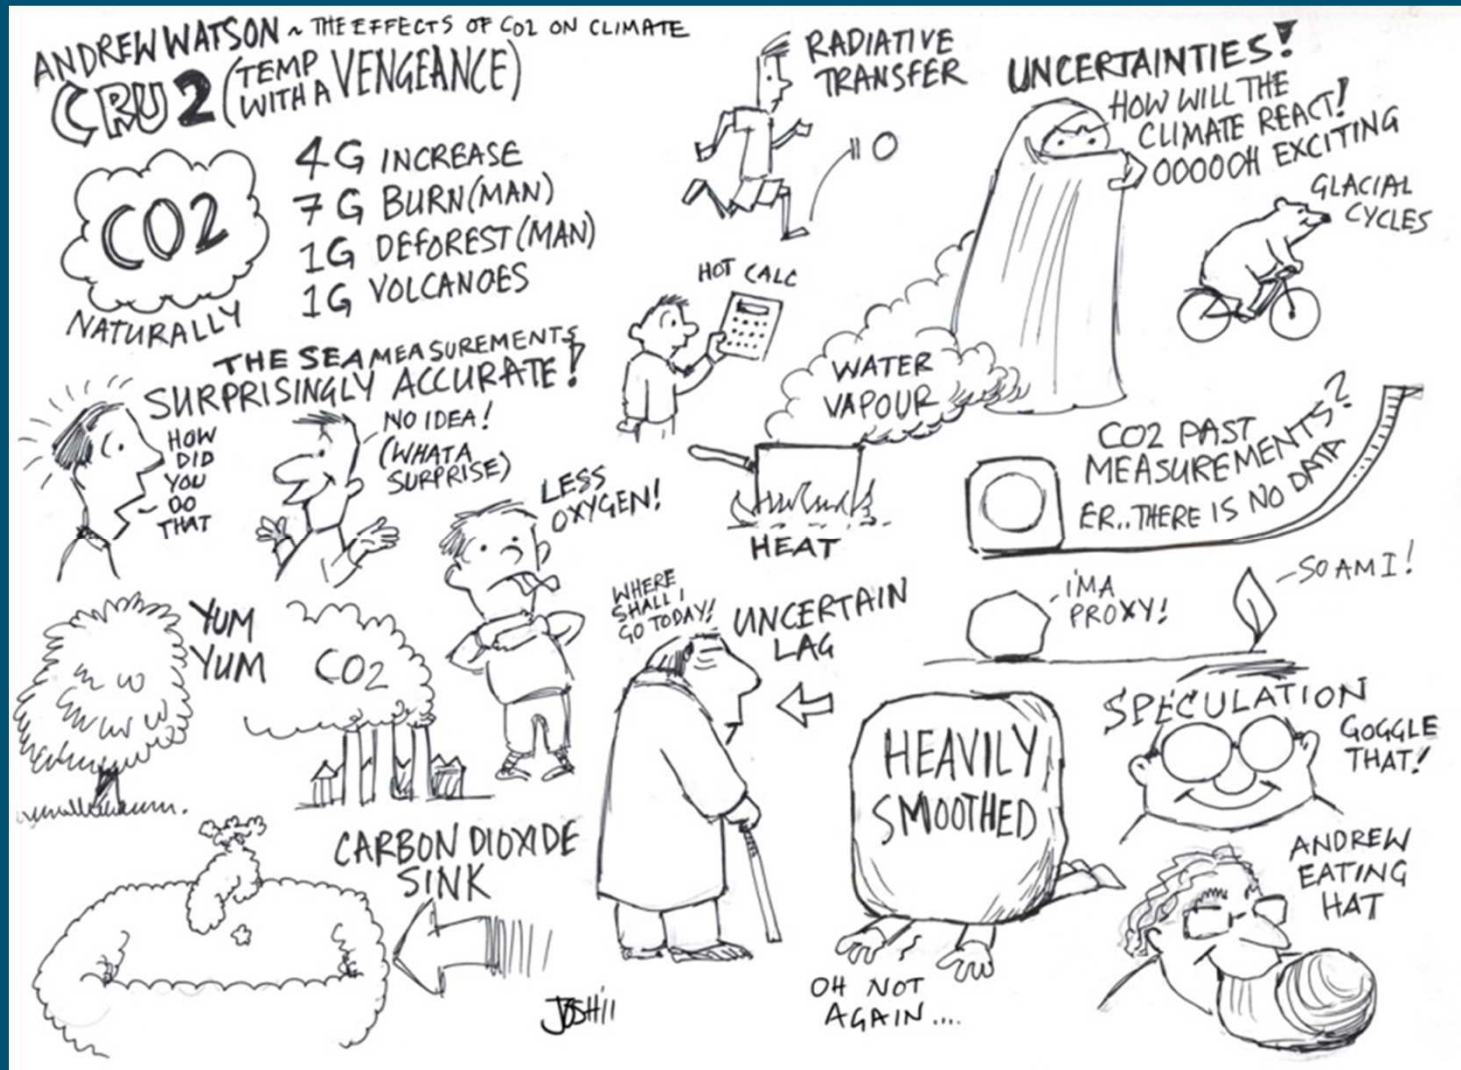 ANDREW WATSON ~ THE EFFECTS OF CO2 ON CLIMATE
CRU 2 (TEMP WITH A VENGEANCE)
CO2
NATURALLY
4G INCREASE
7G BURN (MAN)
1G DEFOREST (MAN)
1G VOLCANOES
RADIATIVE
TRANSFER
UNCERTAINTIES!
HOW WILL THE
CLIMATE REACT!
OOOOOH EXCITING
GLACIAL
CYCLES
HOT CALC
THE SEA MEASUREMENTS
SURPRISINGLY ACCURATE!
HOW
DID
YOU
DO
THAT
NO IDEA!
(WHAT A
SURPRISE)
WATER
VAPOUR
HEAT
CO2 PAST
MEASUREMENTS?
ER.. THERE IS NO DATA
LESS
OXYGEN!
I'M A
PROXY!
SO AM I!
YUM
YUM
CO2
WHERE
SHALL I
GO TODAY!
UNCERTAIN
LAG
HEAVILY
SMOOTHED
OH NOT
AGAIN....
SPECULATION
GOGGLE
THAT!
CARBON DIOXIDE
SINK
ANDREW
EATING
HAT
JOSH'11